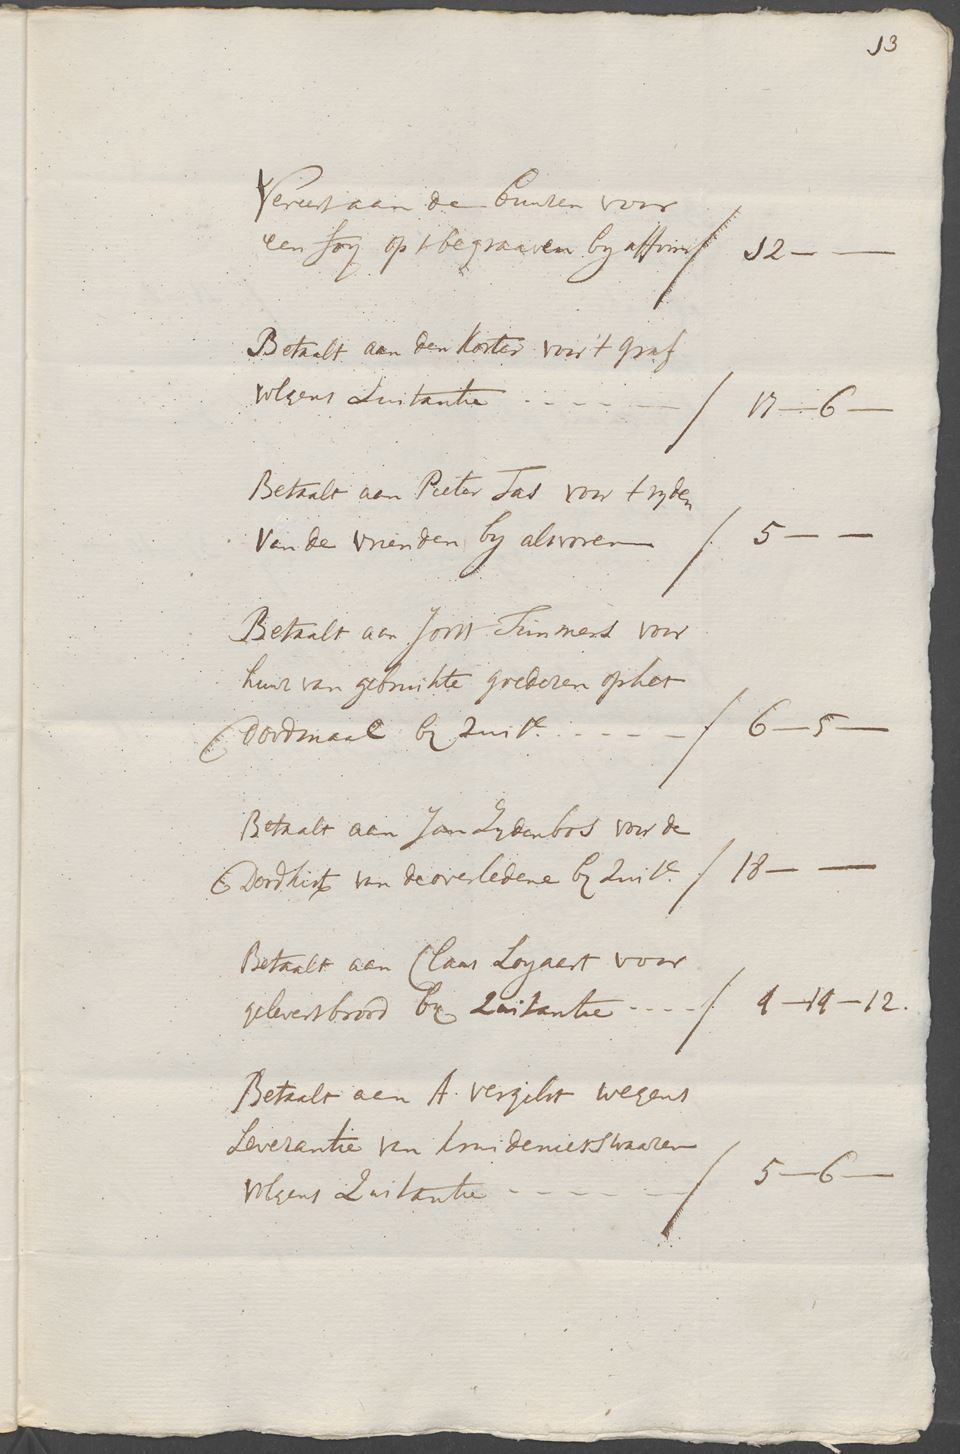 13
Vereert aan de buuren voor
een foy op t begraaven by affirm / 12 — —
Betaalt aan den Koster voor 't graf
volgens Quitantie - - - - - — / 17 — 6 —
Betaalt aan Pieter Tas voor t ryden
van de vrienden by alsvoren — / 5 — —
Betaalt aan Joost Timmers voor
huur van gebruikte goederen op het
Doodmaal by Quitc. - - - - — / 6 — 5 —
Betaalt aan Jan Lydenbos voor de
Doodkist van de overledene by Quitc. / 18 — —
Betaalt aan Claas Loyaert voor
gelevert brood by Quitantie - - - - / 9 — 19 — 12.
Betaalt aan A. vergilst wegens
Leverantie van kruideniers waaren
volgens Quitantie - - - - - — / 5 — 6 —